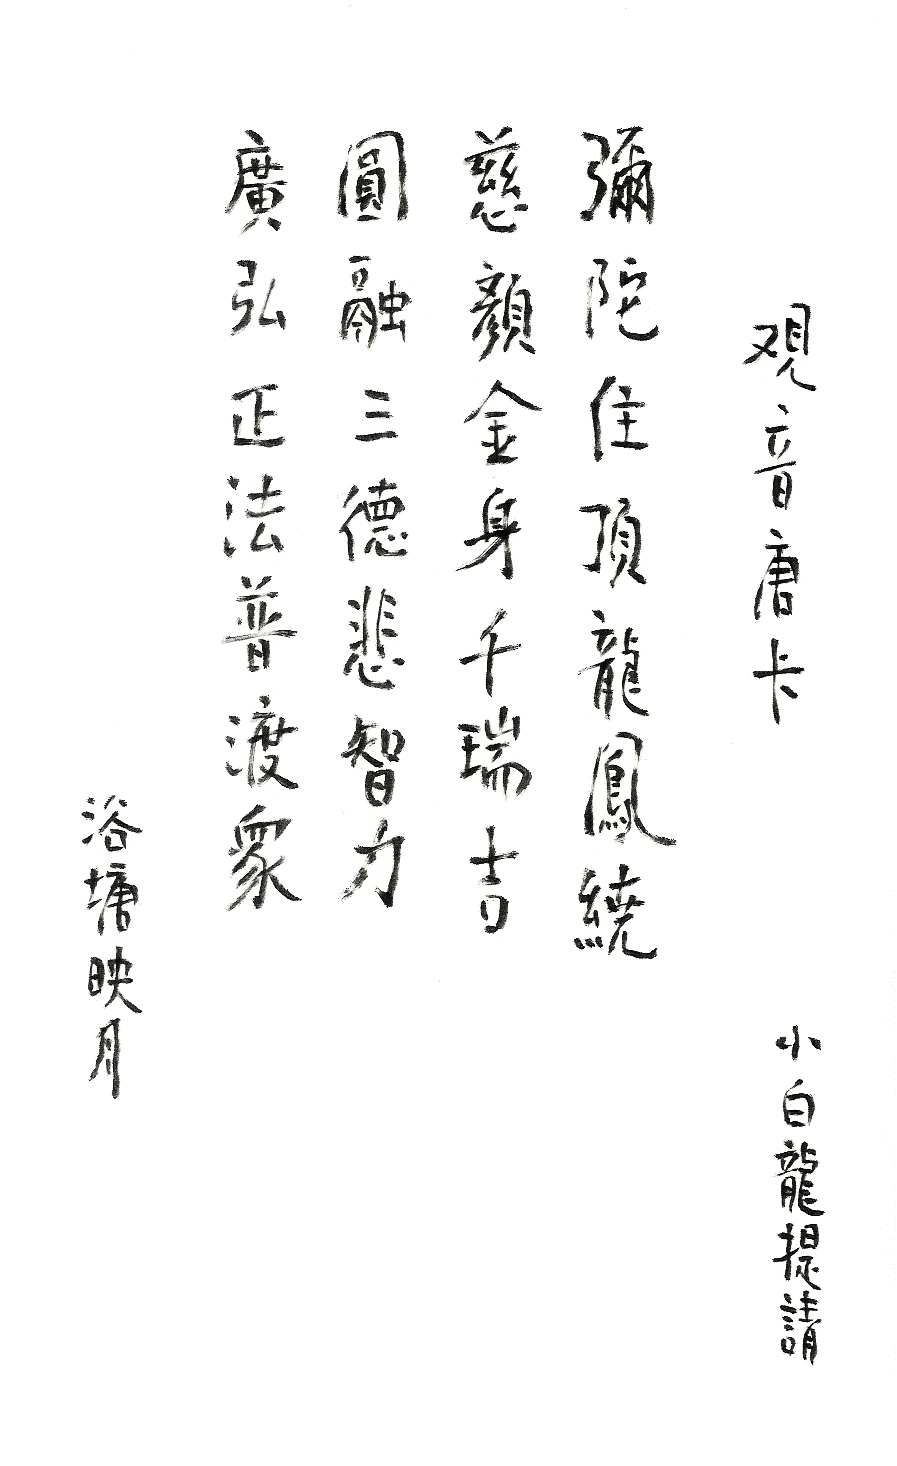 观音唐卡
小白龍提請
彌陀住頂龍鳳繞
慈顏金身千瑞吉
圓融三德悲智力
廣弘正法普渡眾
浴塘映月